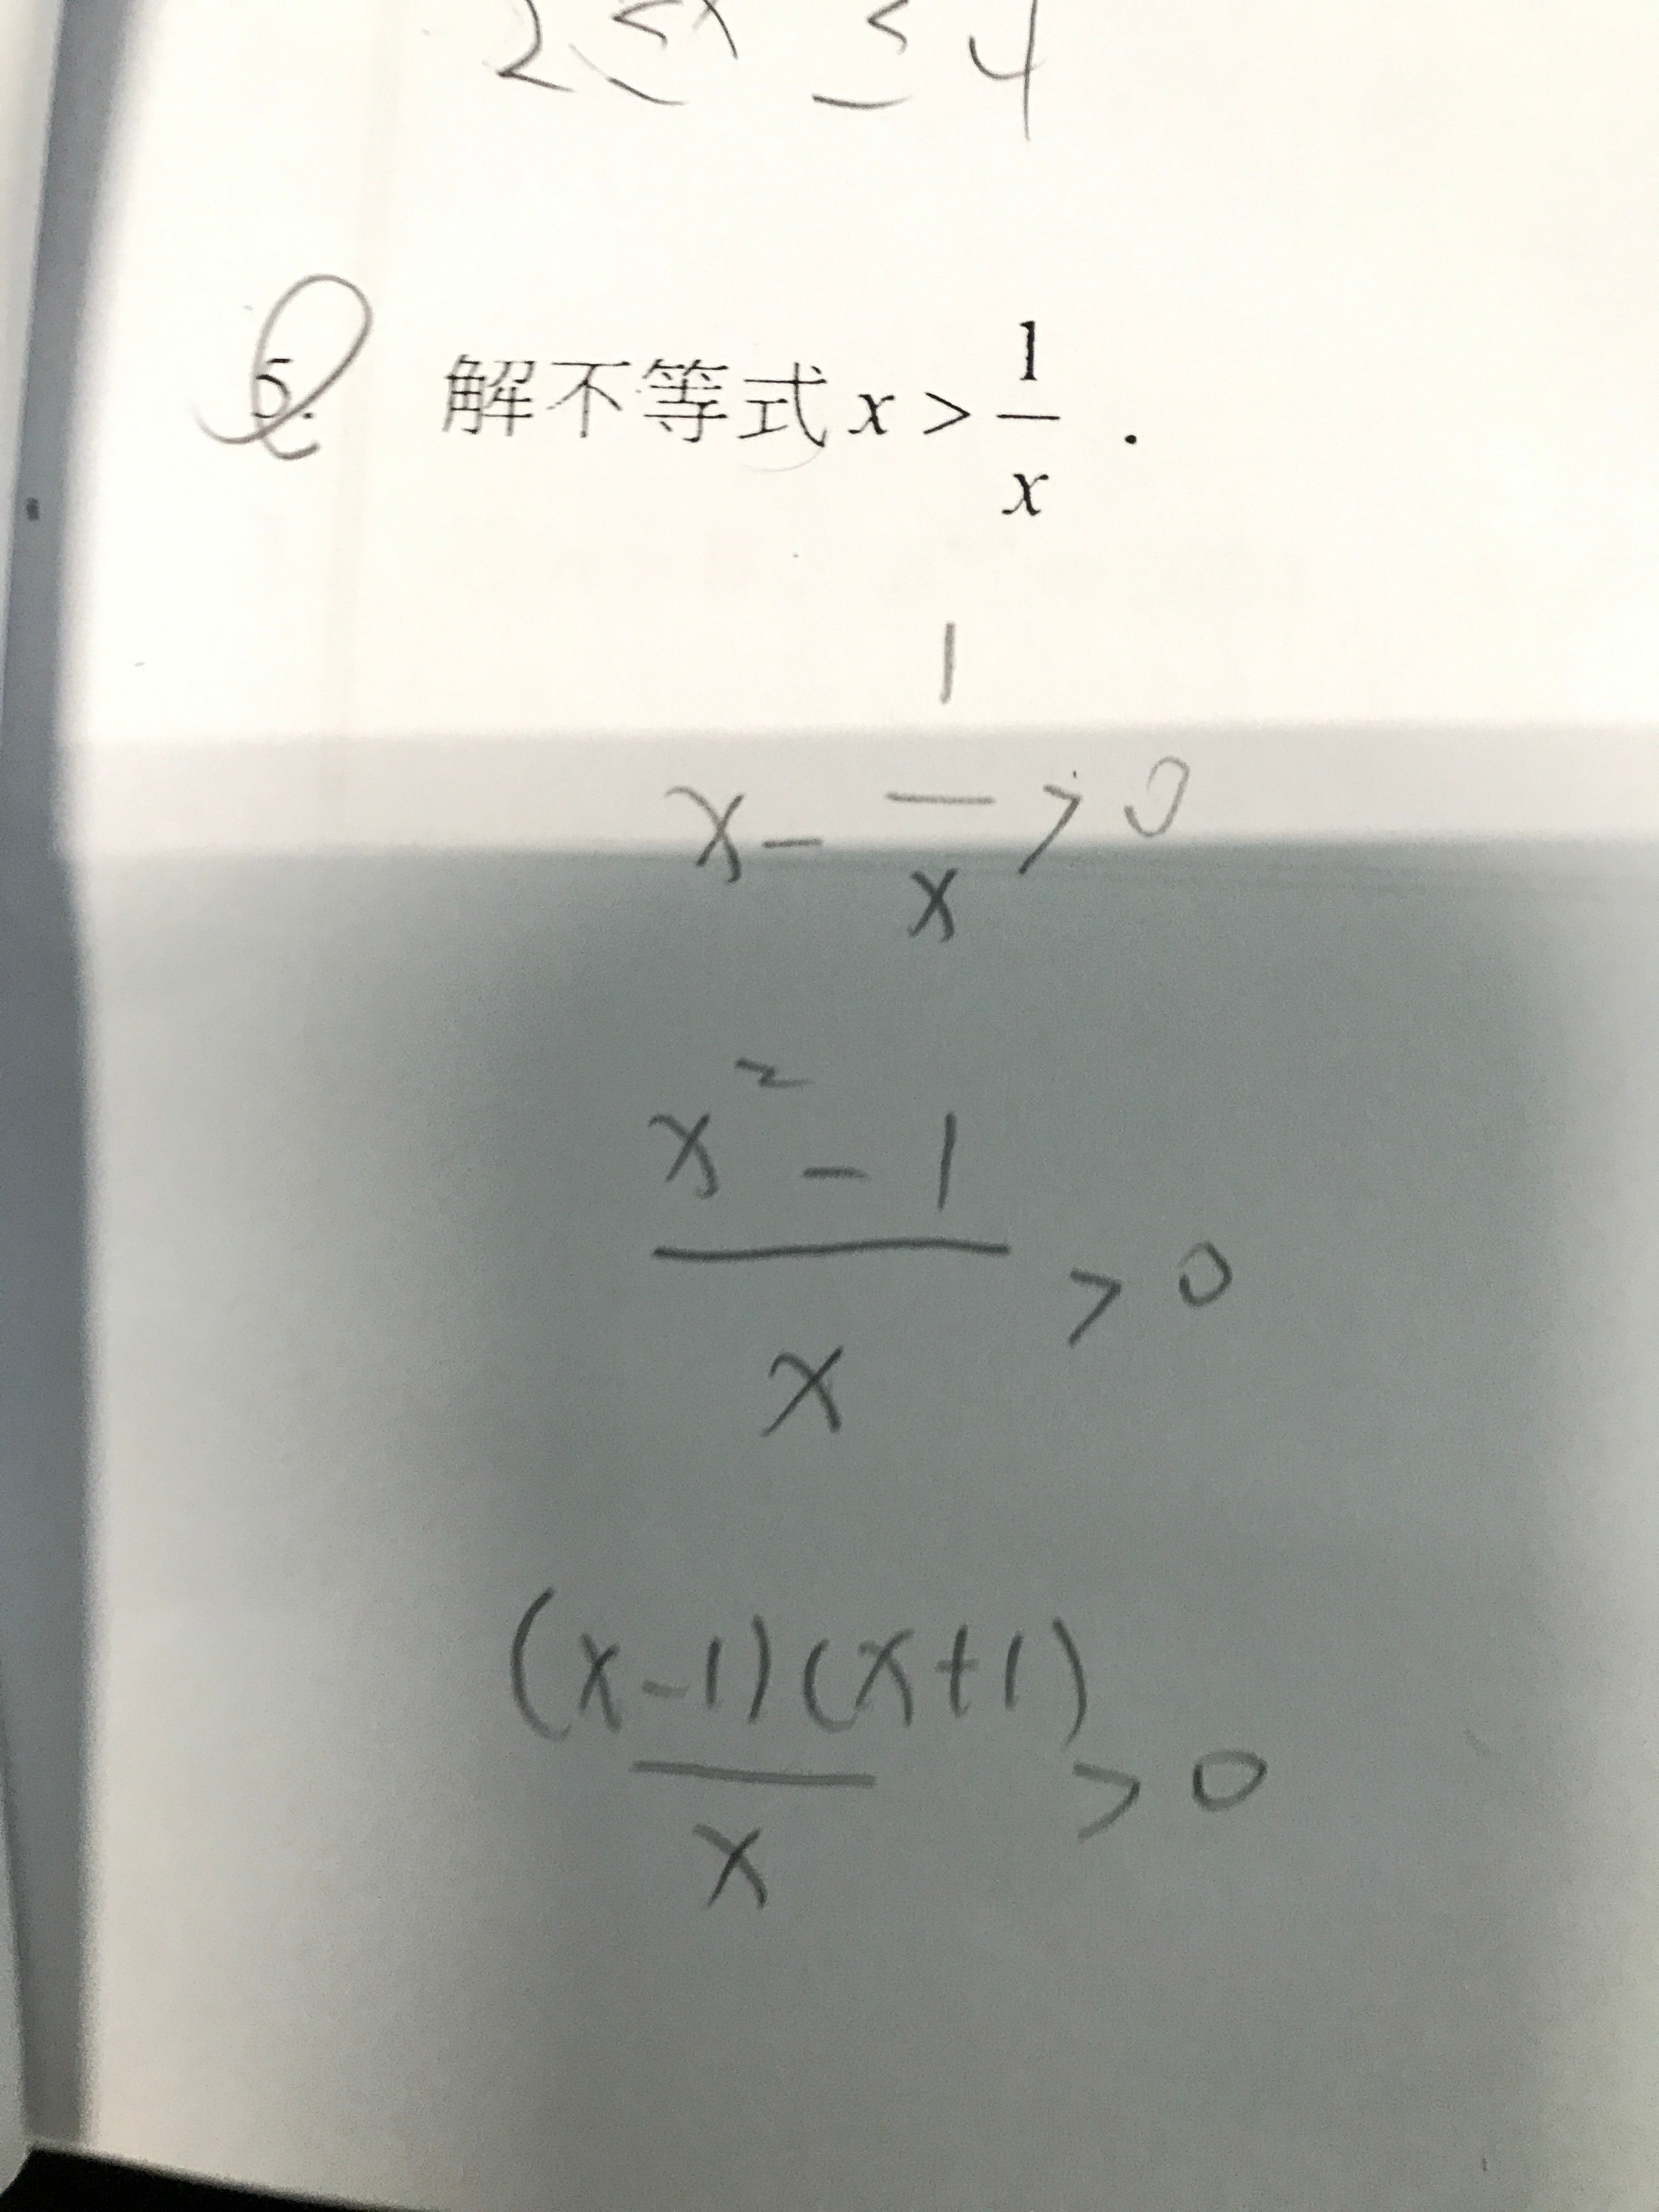 2 ≤ x ≤ 4
5. 解不等式 x > 1/x .
x - 1/x > 0
x² - 1 / x > 0
(x-1)(x+1) / x > 0